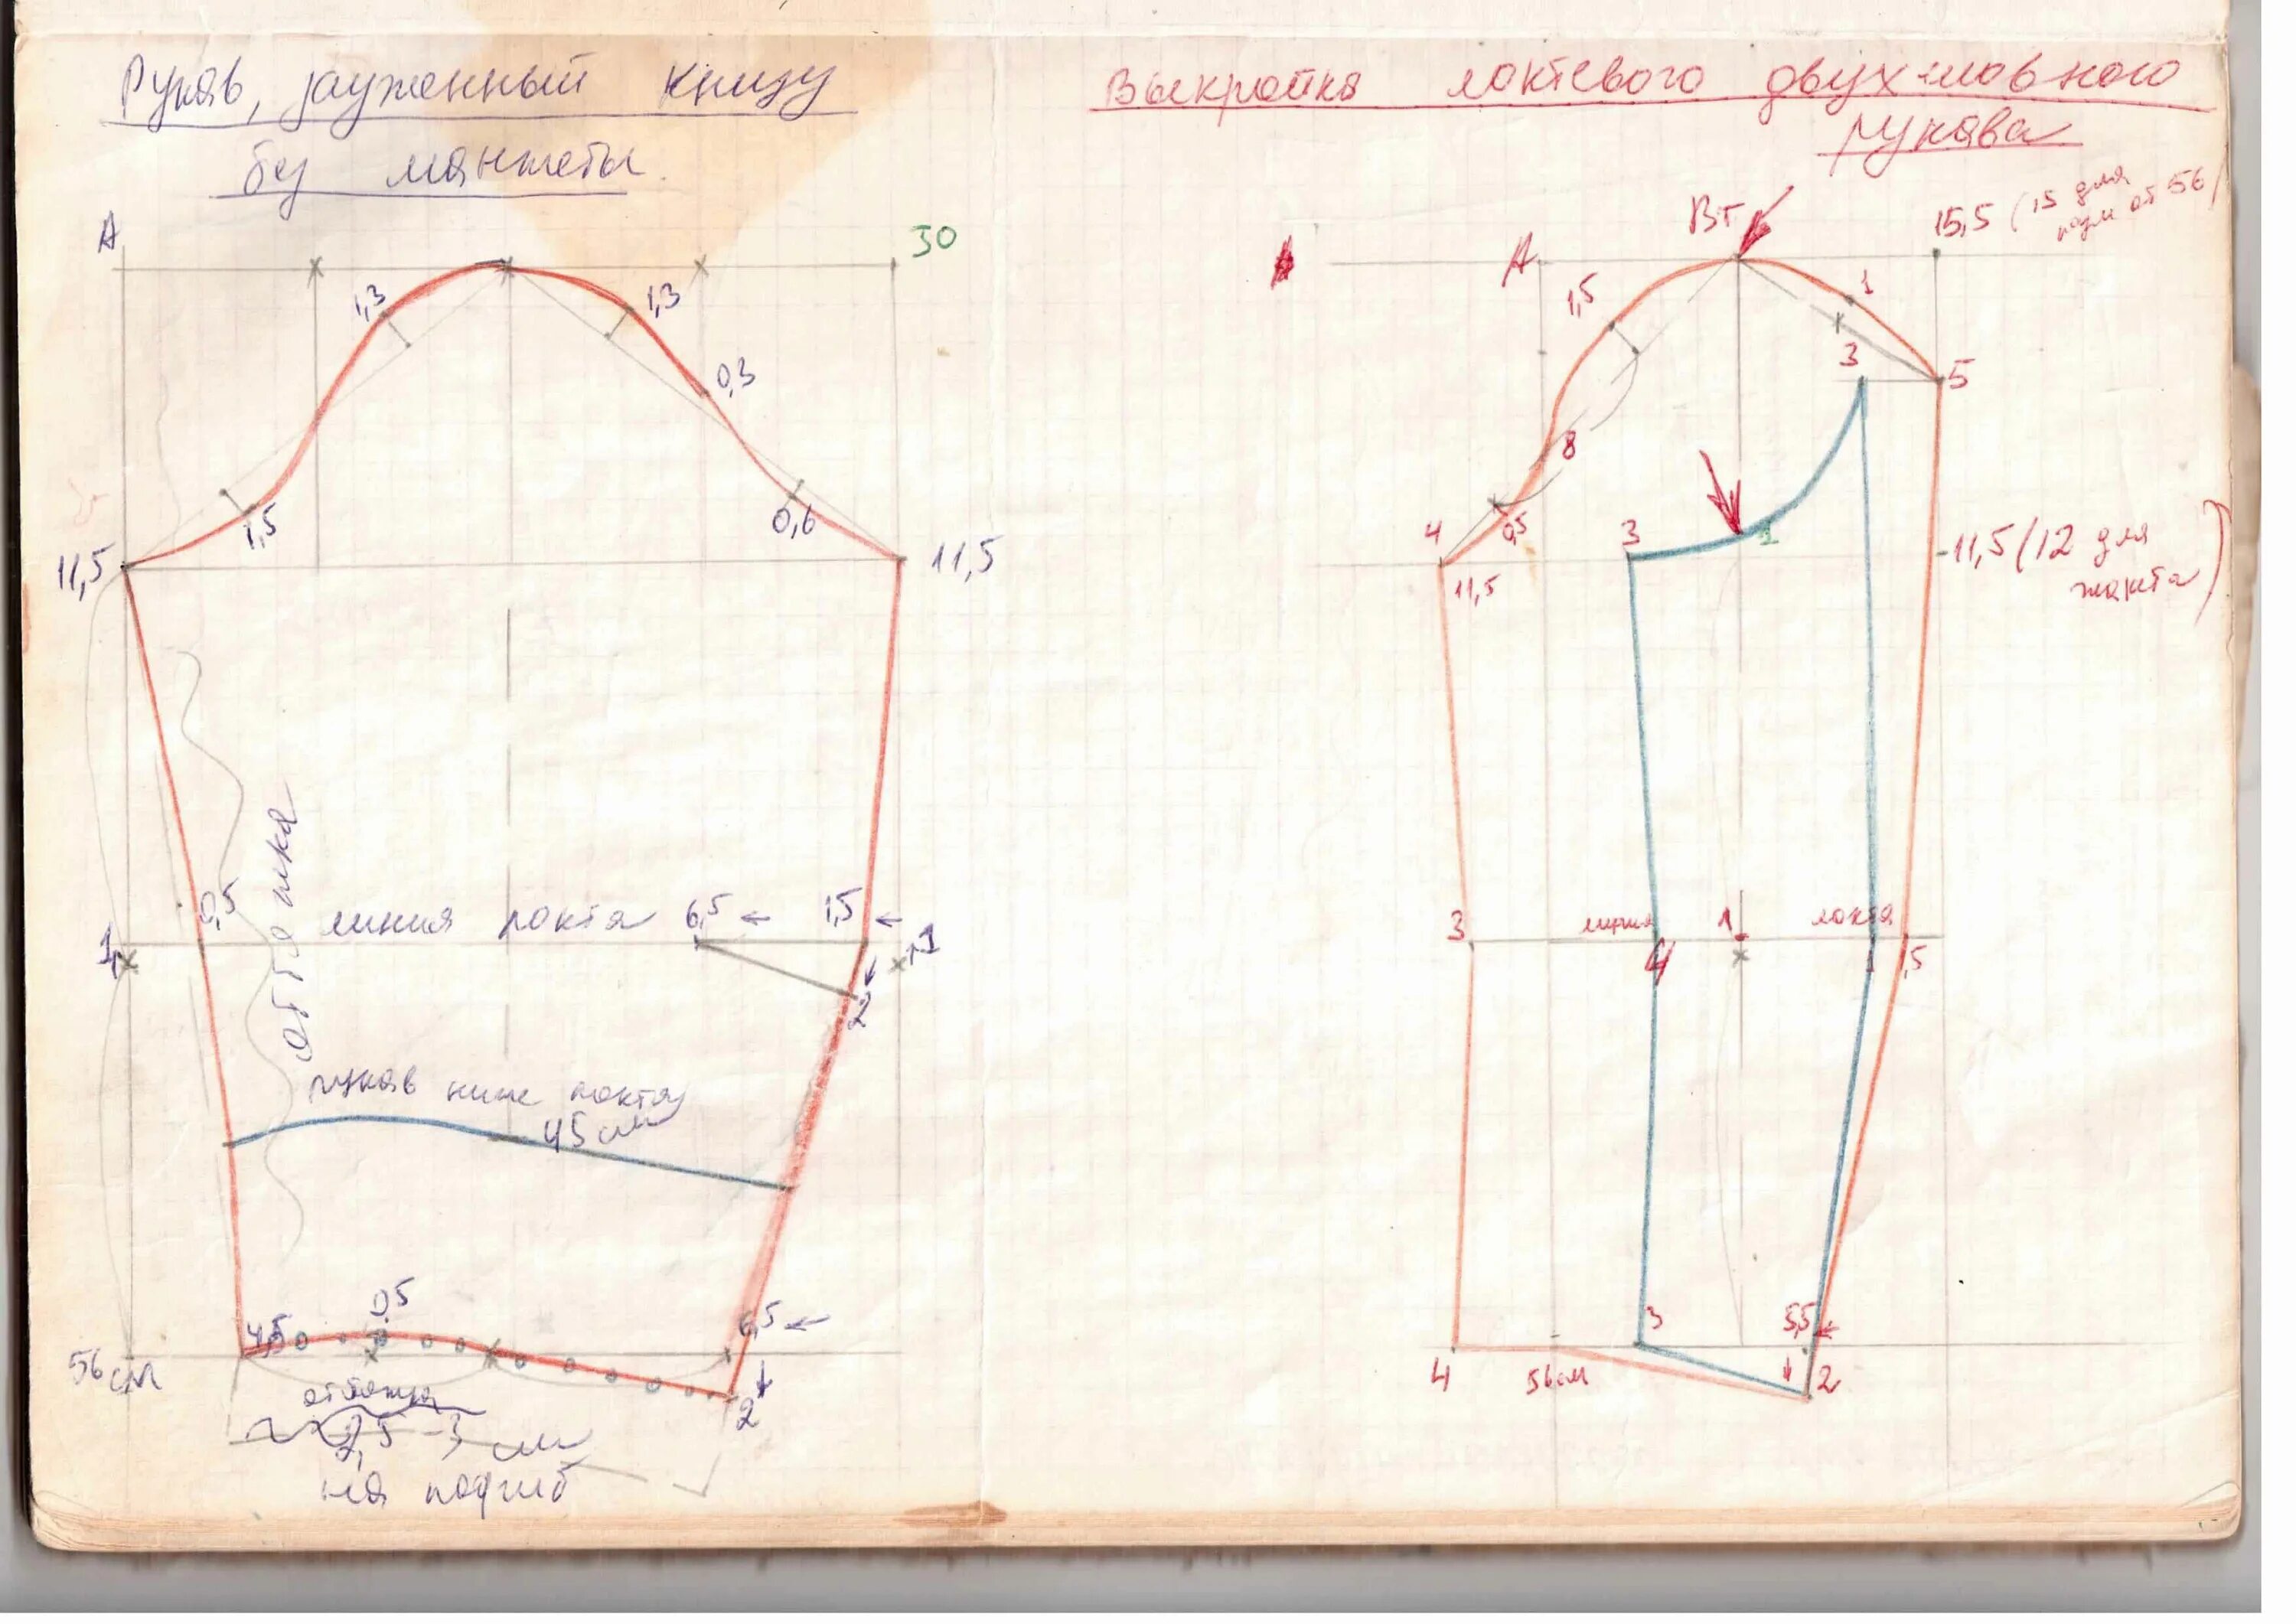 Рукав, зауженный книзу
без манжеты.
А
30
1,3
1,3
0,3
1,5
0,6
11,5
11,5
0,5
линия локтя
6,5 ←
1,5 ←
1
1
2
оттяжка
рукав ниже локтя
45 см
0,5
4,5
6,5 ←
56 см
2
оттяжка
2,5 - 3 см
на подгиб
Выкройка локтевого двухшовного
рукава
Вт
15,5 (15 для
разм от 56)
А
1,5
1
3
5
8
4
0,5
3
1
11,5
11,5 (12 для
жакета)
3
линия
1
локтя
4
1
1,5
3
5,5
4
56 см
2